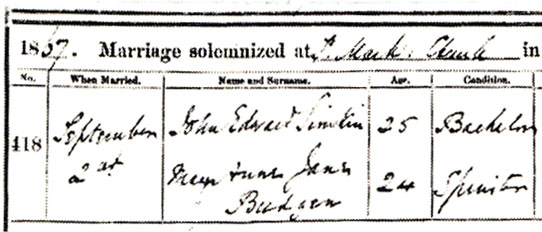 1867. Marriage solemnized at St. Mark's Church in
No. When Married. Name and Surname. Age. Condition.
418 September 2nd John Edward Simkin 25 Bachelor
Mary Anne Jane Budgen 24 Spinster